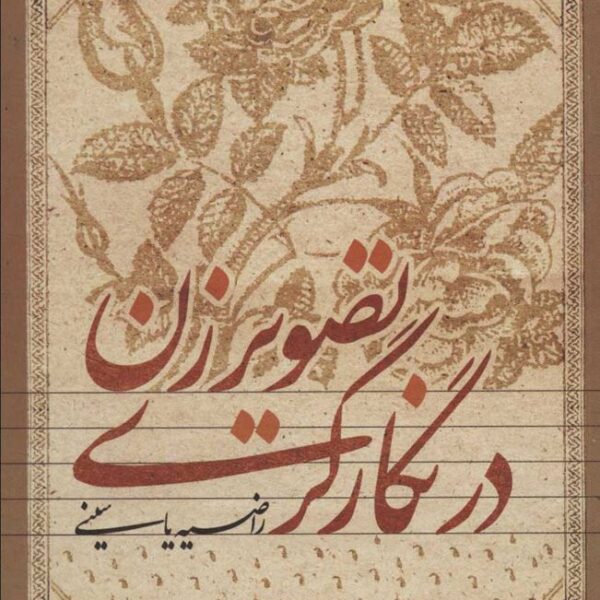 تصویر زن
در نگارگری
راضیه یاسینی